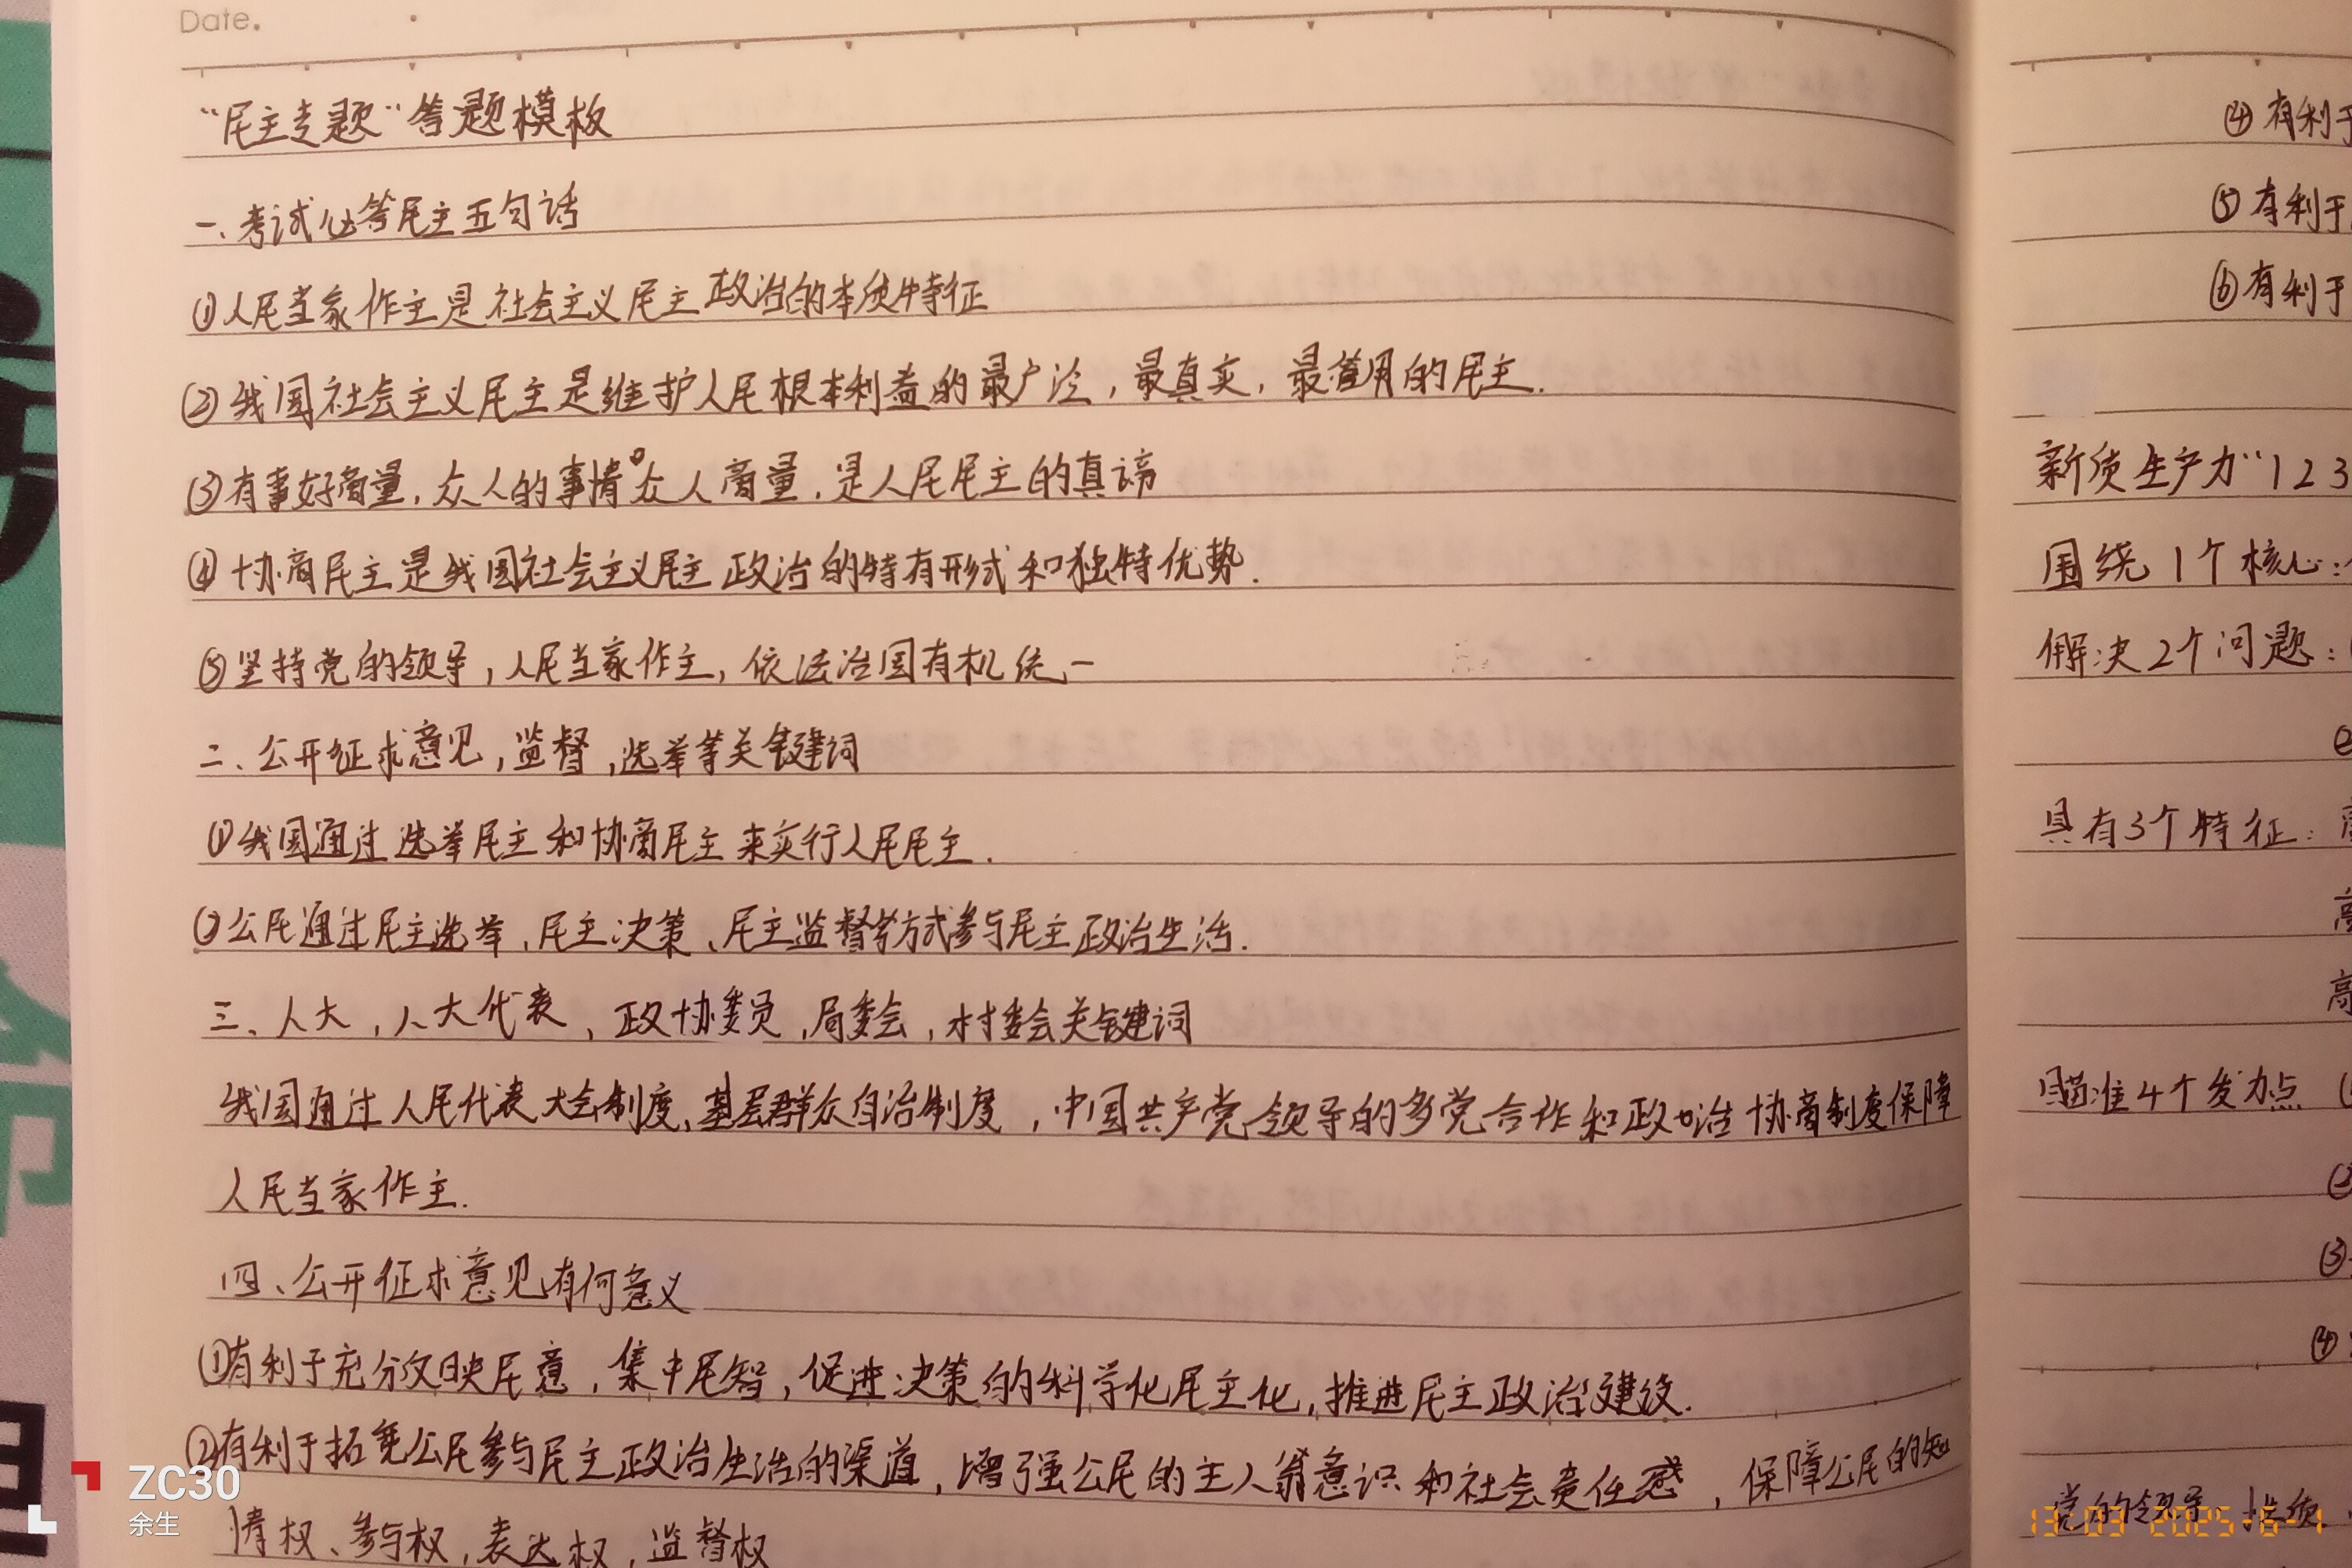 Date.
“民主专题”答题模板
一、考试必答民主五句话
①人民当家作主是社会主义民主政治的本质特征
②我国社会主义民主是维护人民根本利益的最广泛,最真实,最管用的民主.
③有事好商量,众人的事情众人商量,是人民民主的真谛
④协商民主是我国社会主义民主政治的特有形式和独特优势.
⑤坚持党的领导,人民当家作主,依法治国有机统一
二、公开征求意见,监督,选举等关键词
①我国通过选举民主和协商民主来实行人民民主.
②公民通过民主选举、民主决策、民主监督等方式参与民主政治生活.
三、人大,人大代表,政协委员,居委会,村委会关键词
我国通过人民代表大会制度、基层群众自治制度,中国共产党领导的多党合作和政治协商制度保障
人民当家作主.
四、公开征求意见有何意义
①有利于充分反映民意,集中民智,促进决策的科学化民主化,推进民主政治建设.
②有利于拓宽公民参与民主政治生活的渠道,增强公民的主人翁意识和社会责任感,保障公民的知
情权、参与权,表达权,监督权
④有利于
⑤有利于
⑥有利于
新质生产力“123
围绕1个核心:
解决2个问题:
②
具有3个特征:
高
高
瞄准4个发力点
②
③
④
党的领导、
ZC30
余生
13:03 2025-6-1